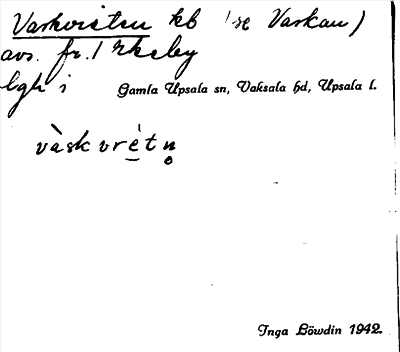 Varkvisten kb (se Varkau)
avs. fr. 1 Rkeby
lgh i Gamla Upsala sn, Vaksala hd, Upsala l.
vàskvrétn̥
Inga Löwdin 1942.